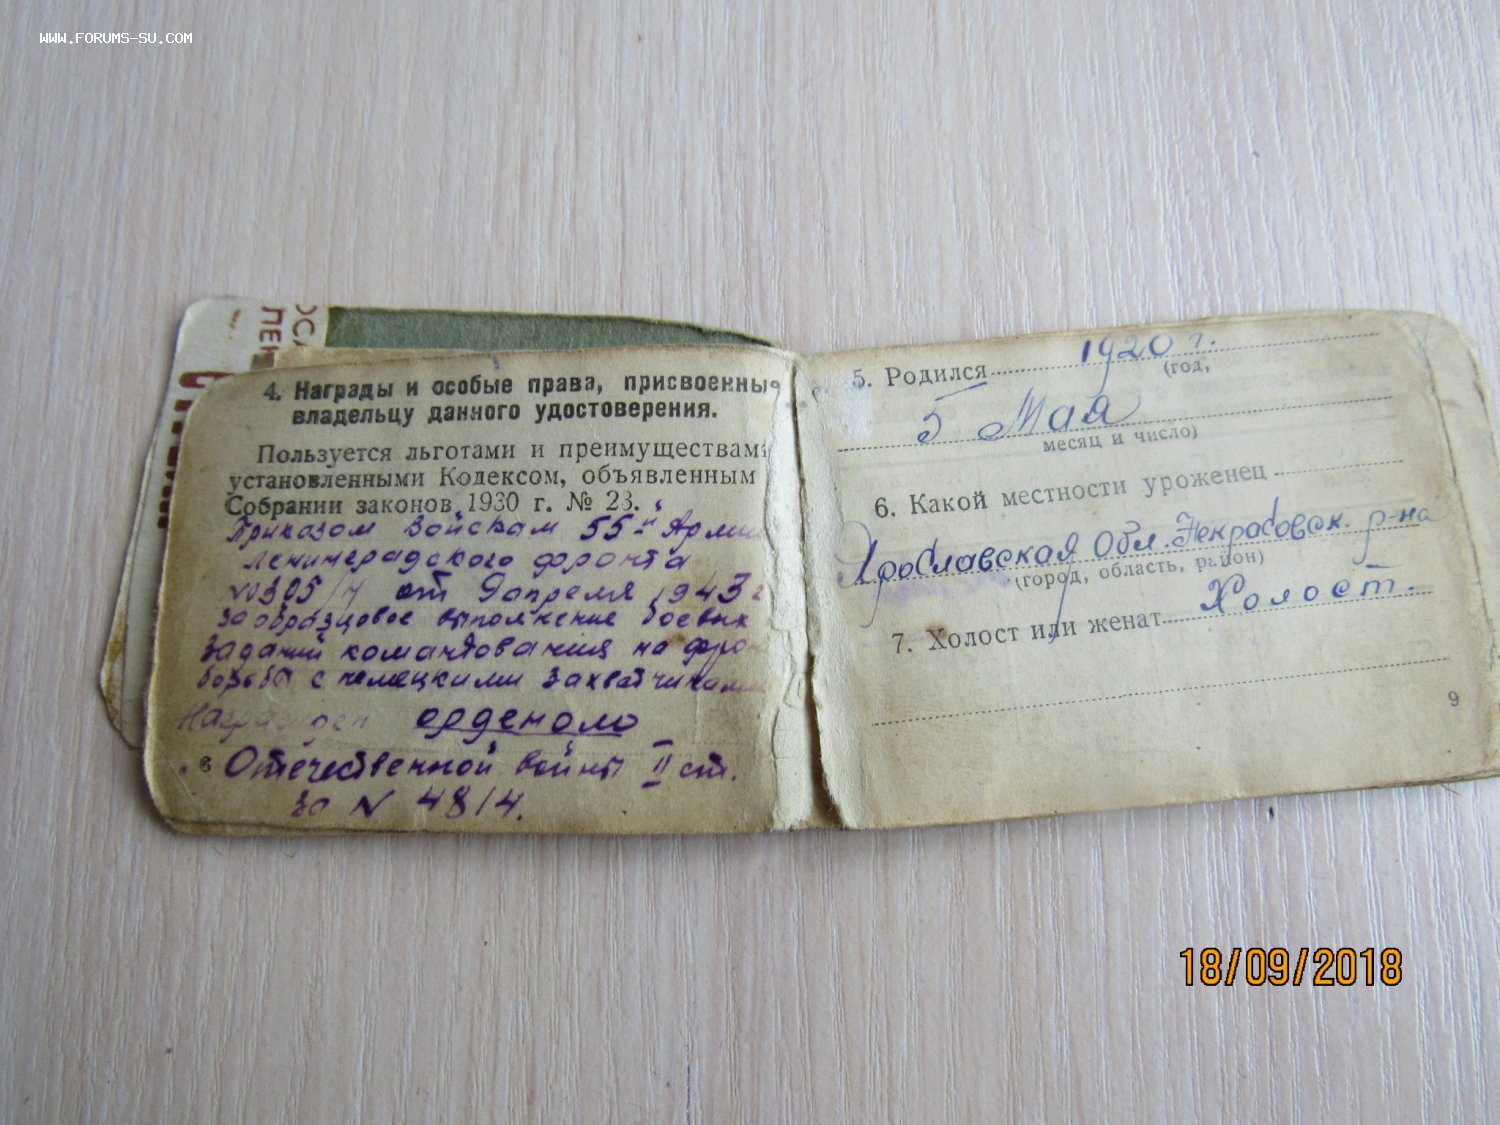 WWW.FORUMS-SU.COM
4. Награды и особые права, присвоенные
владельцу данного удостоверения.
Пользуется льготами и преимуществами
установленными Кодексом, объявленным
Собрании законов 1930 г. № 23.
Приказом войскам 55-й Армии
Ленинградского фронта
от 9 апреля 1943 г
за образцовое выполнение боевых
заданий командования на фронте
борьбы с немецкими захватчиками
награжден орденом
Отечественной войны II ст.
за N 4814.
5. Родился 1920 г.
(год,
5 Мая
месяц и число)
6. Какой местности уроженец
Ярославская Обл. Некрасовск. р-на
(город, область, район)
7. Холост или женат Холост.
9
18/09/2018